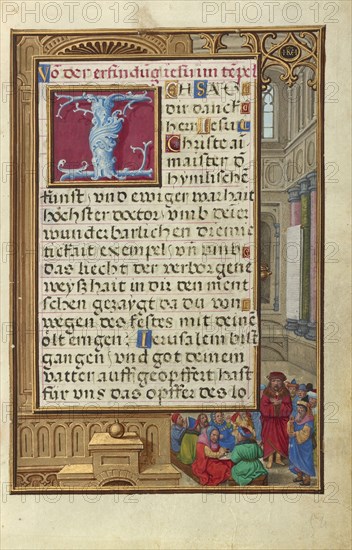 Võ der erfindũg Jesu im tẽpel
ICH SAG
dir danckh
herr Iesu
Christe ain
maister d̃
hymlischen
kunst, vnd ewiger warhait
höchster doctor, vmb deiner
wunderbarlichen diemie
tickait exempel, vñ vmb
das liecht der verborgene
weyßhait in dir den ment
schen geraygt da du von
wegen des festes mit deinẽ
ölt en gen Ierusalem bist
gangen, vnd got deinem
vatter auff geopffert hast
für vns das opffer des lo